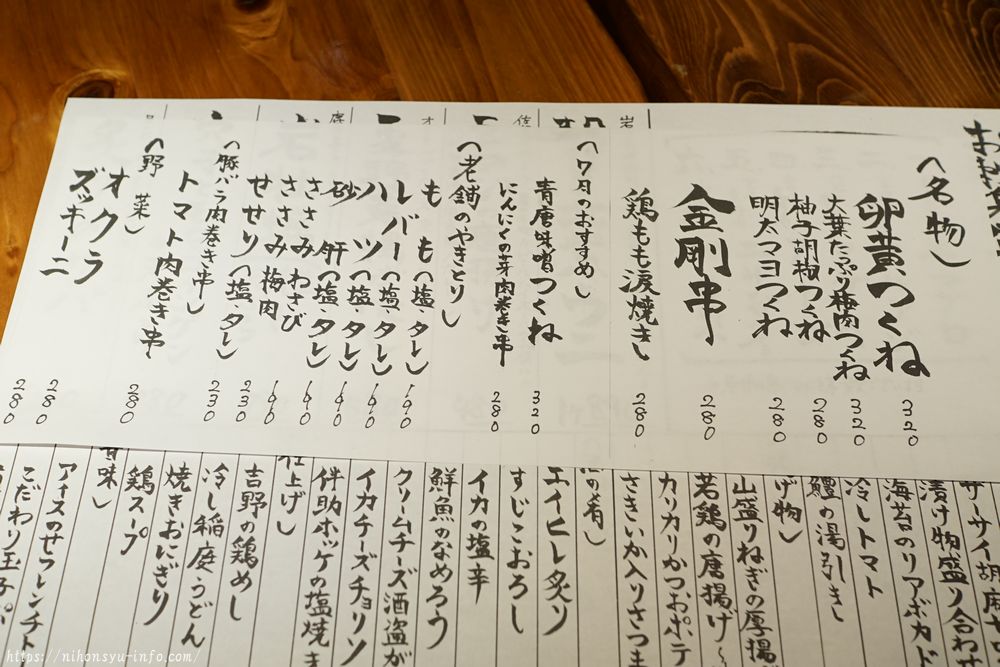 〈名物〉
卵黄つくね 320
大葉たっぷり梅肉つくね 320
柚子胡椒つくね 280
明太マヨつくね 280
金剛串 280
鶏もも涙焼き 280
〈7月のおすすめ〉
青唐味噌つくね 320
にんにくの芽肉巻き串 280
〈老舗のやきとり〉
もも〈塩・タレ〉 190
レバー〈塩・タレ〉 190
ハツ〈塩・タレ〉 190
砂肝〈塩・タレ〉 190
ささみわさび 190
ささみ梅肉 190
せせり〈塩・タレ〉 230
〈豚バラ肉巻き串〉 230
トマト肉巻き串 280
〈野菜〉
オクラ 280
ズッキーニ 280
サーサイ胡麻
漬け物盛り合わせ
海苔のリアボカド
冷しトマト
鱧の湯引き
げ物〉
山盛りねぎの厚揚げ
若鶏の唐揚げ〜
カリカリかつおポテ
さきいか入りさつま
の肴〉
エイヒレ炙り
すじこおろし
イカの塩辛
鮮魚のなめろう
クリームチーズ酒盗が
イカチーズチョリソ
伴助ホッケの塩焼き
仕上げ〉
吉野の鶏めし
冷し稲庭うどん
焼きおにぎり
鶏スープ
甘味〉
アイスのせフレンチト
こだわり玉子プ
https://nihonsyu-info.com/